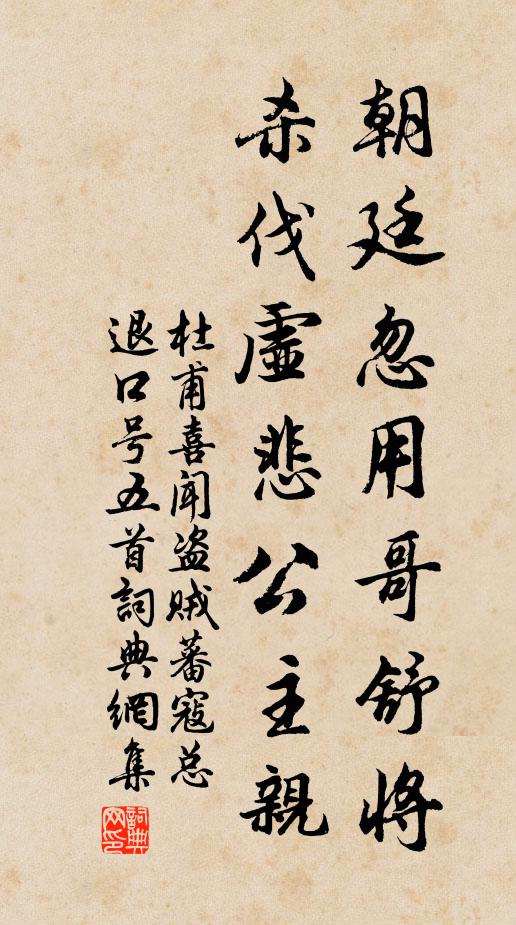 朝廷忽用哥舒將
杀伐虛悲公主親
杜甫喜闻盗贼蕃寇总
退口号五首詞典網集
詞典网印